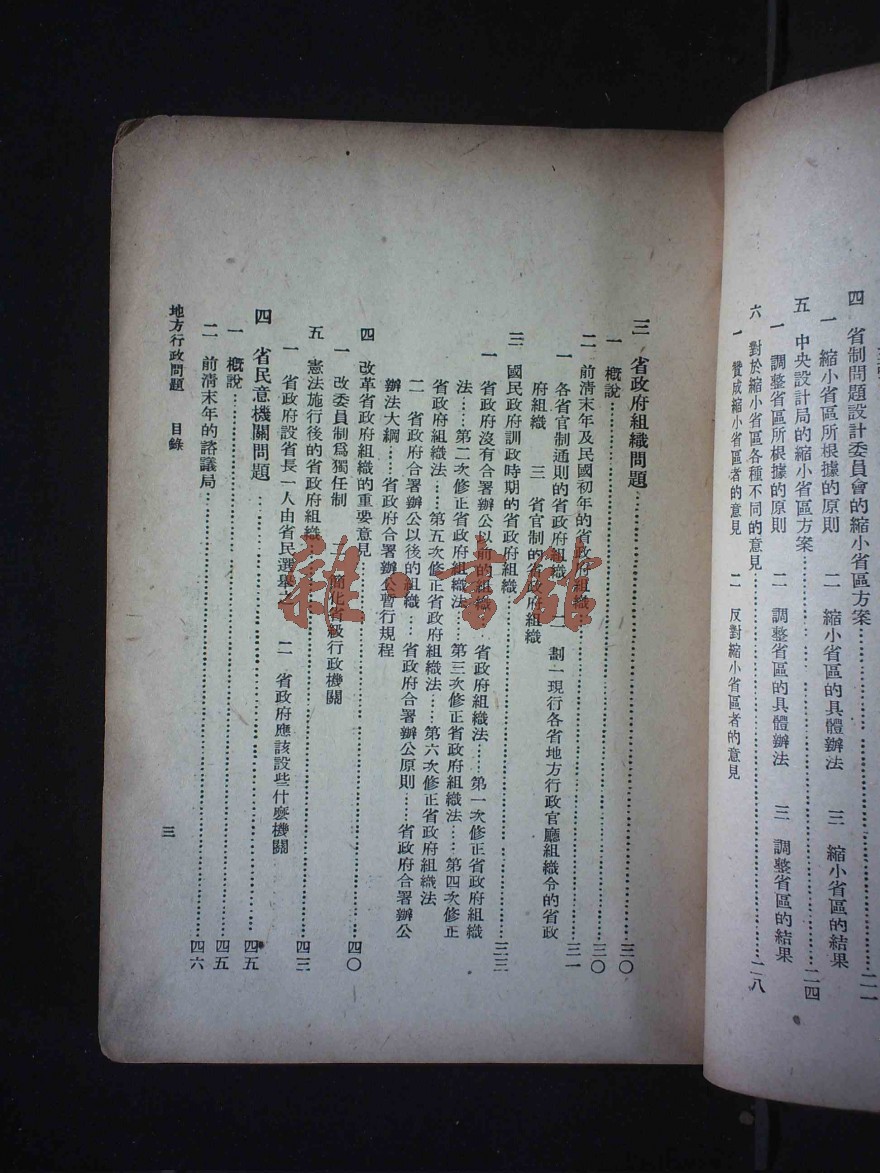 四　省制問題設計委員會的縮小省區方案……二一
一　縮小省區所根據的原則　二　縮小省區的具體辦法　三　縮小省區的結果
五　中央設計局的縮小省區方案……二四
一　調整省區所根據的原則　二　調整省區的具體辦法　三　調整省區的結果
六　對於縮小省區各種不同的意見……二八
一　贊成縮小省區者的意見　二　反對縮小省區者的意見
三　省政府組織問題……三〇
一　概說……三〇
二　前清末年及民國初年的省政府組織……三一
一　各省官制通則的省政府組織　二　劃一現行各省地方行政官廳組織令的省政
府組織　三　省官制的省政府組織
三　國民政府訓政時期的省政府組織……三三
一　省政府沒有合署辦公以前的組織……省政府組織法……第一次修正省政府組織
法……第二次修正省政府組織法……第三次修正省政府組織法……第四次修正
省政府組織法……第五次修正省政府組織法……第六次修正省政府組織法
二　省政府合署辦公以後的組織……省政府合署辦公原則……省政府合署辦公
辦法大綱……省政府合署辦公暫行規程
四　改革省政府組織的重要意見……四〇
一　改委員制爲獨任制　二　簡化省級行政機關
五　憲法施行後的省政府組織……四三
一　省政府設省長一人由省民選舉之　二　省政府應該設些什麼機關
四　省民意機關問題……四五
一　概說……四五
二　前清末年的諮議局……四六
地方行政問題　目錄
三
雜·書館